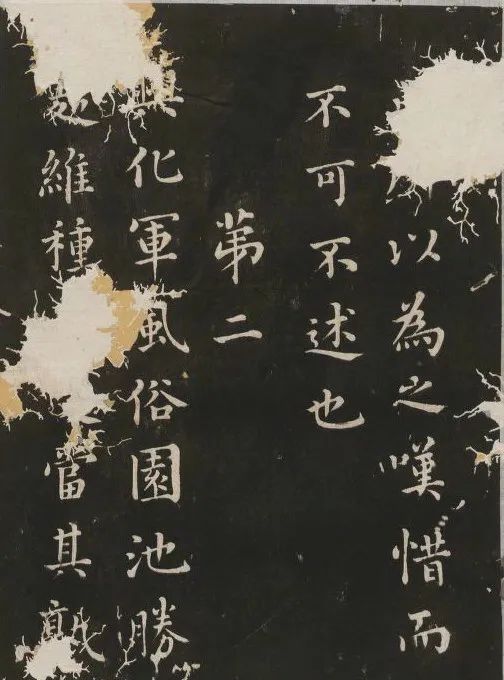 以為之嘆惜而
不可不述也
苐二
興化軍風俗園池勝
維種當其熟